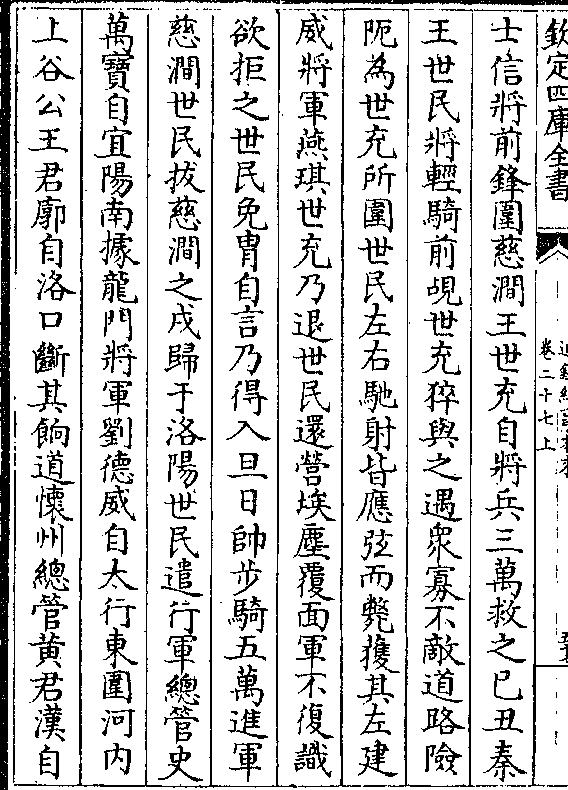 欽定四庫全書
卷二十七上
士信將前鋒圍慈澗王世充自將兵三萬救之己丑秦
王世民將輕騎前覘世充猝與之遇衆寡不敵道路險
阨為世充所圍世民左右馳射皆應弦而斃擭其左建
威將軍燕琪世充乃退世民還營埃塵覆面軍不復識
欲拒之世民免胄自言乃得入旦日帥步騎五萬進軍
慈澗世民拔慈澗之戍歸于洛陽世民遣行軍總管史
萬寶自宜陽南據龍門將軍劉德威自太行東圍河内
上谷公王君廓自洛口斷其餉道懷州總管黄君漢自